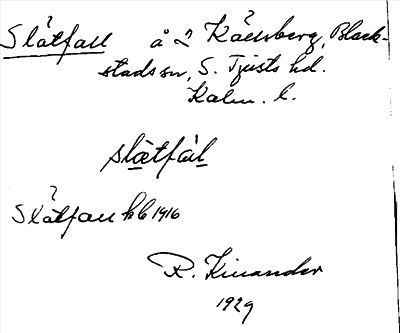 Slätfall å Källsberg, Black-
stads sn, S. Tjusts hd.
Kalm. l.
slätfàl
Slätfall hb 1916
R. Kinander
1929